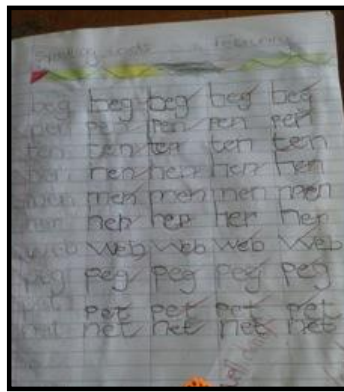 Spelling words February
beg beg beg beg beg
pen pen pen pen pen
ten ten ten ten ten
hen hen hen hen hen
men men men men men
her her her her her
web web web web web
peg peg peg peg peg
pet pet pet pet pet
net net net net net